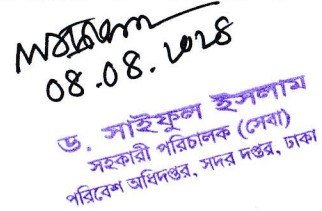 08.08.2024
ড. সাইফুল ইসলাম
সহকারী পরিচালক (সেবা)
পরিবেশ অধিদপ্তর, সদর দপ্তর, ঢাকা